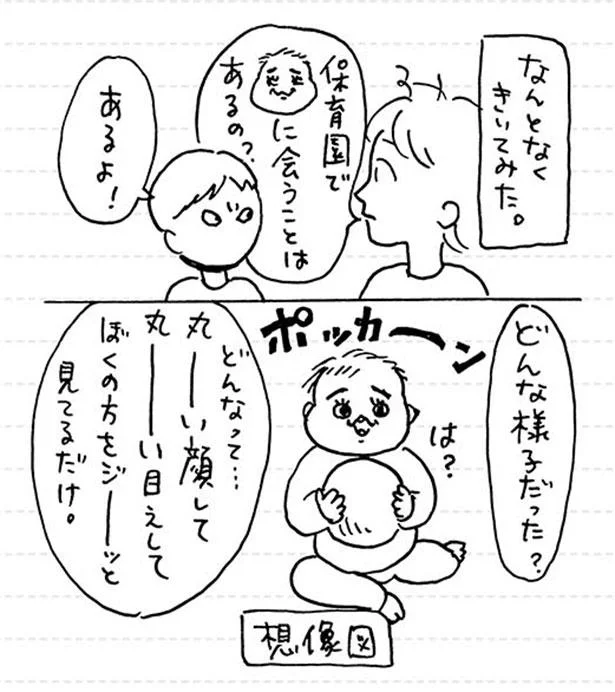 なんとなく
きいてみた。
保育園で
に会うことは
あるの?
あるよ!
どんな様子だった?
ポッカーン
は?
どんなって…
丸――い顔して
丸――い目えして
ぼくの方をジーーッと
見てるだけ。
想像図